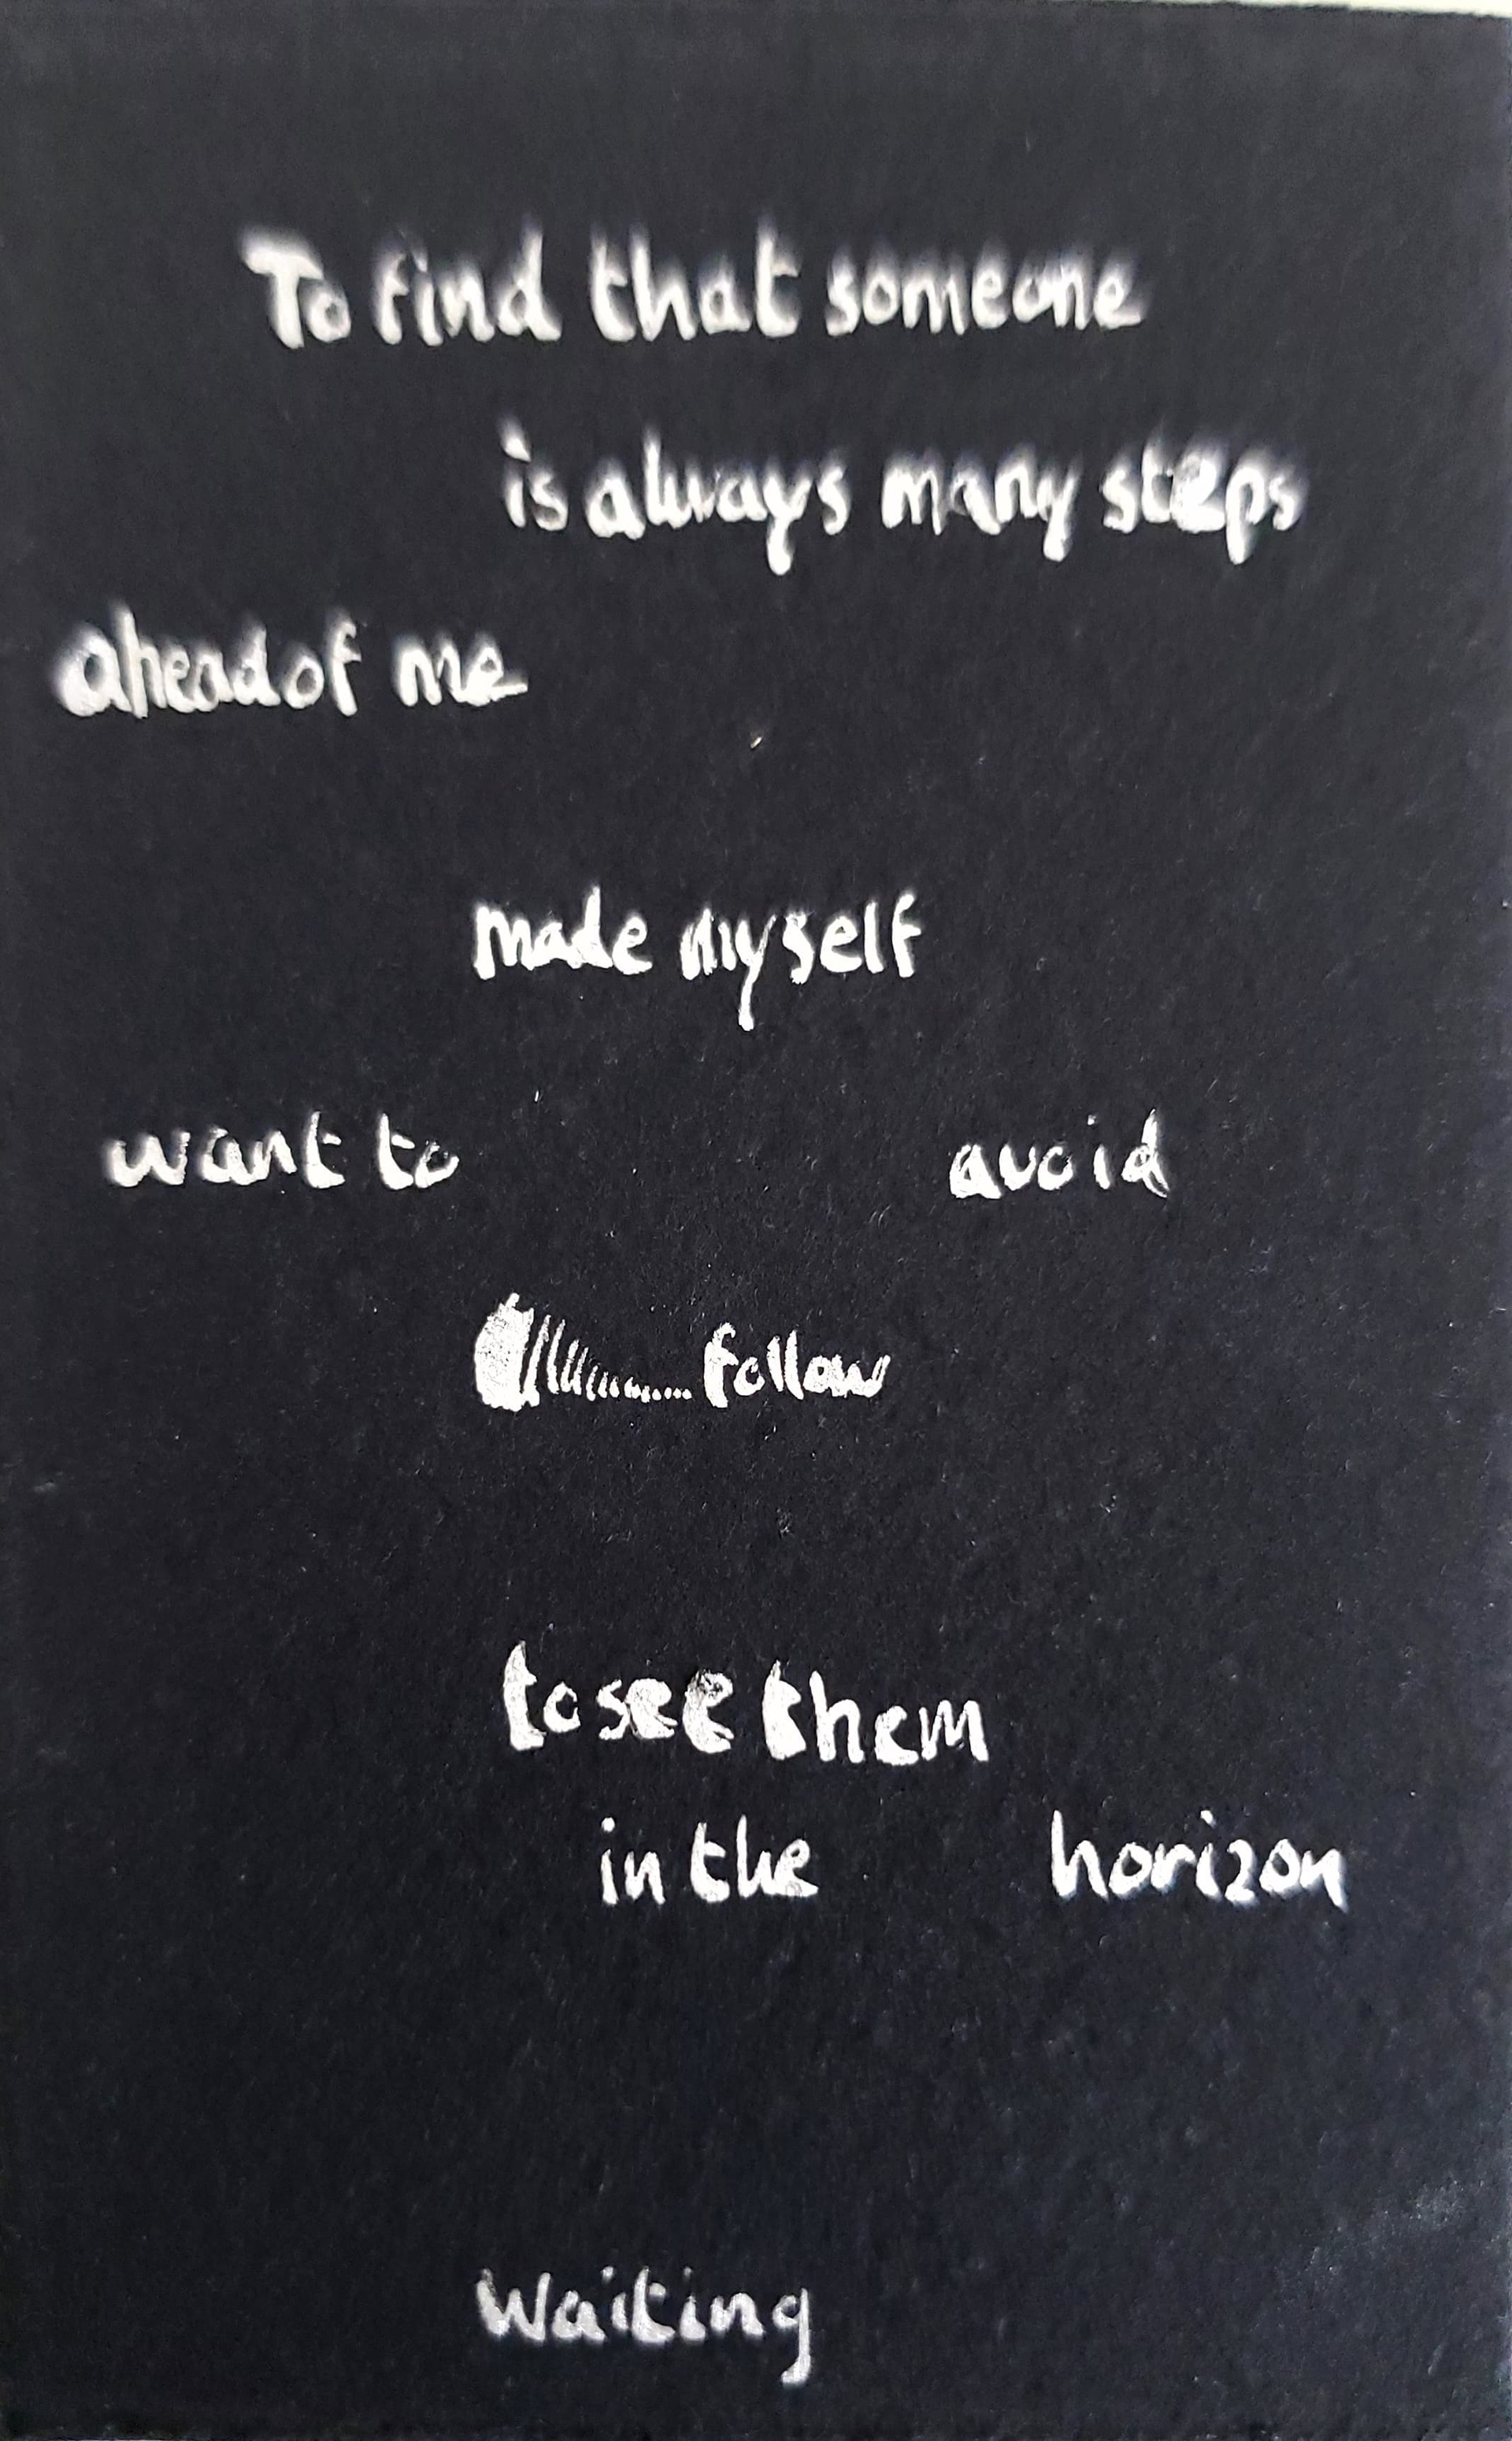 To find that someone
is always many steps
ahead of me
made myself
want to avoid
follow
to see them
in the horizon
Waiting